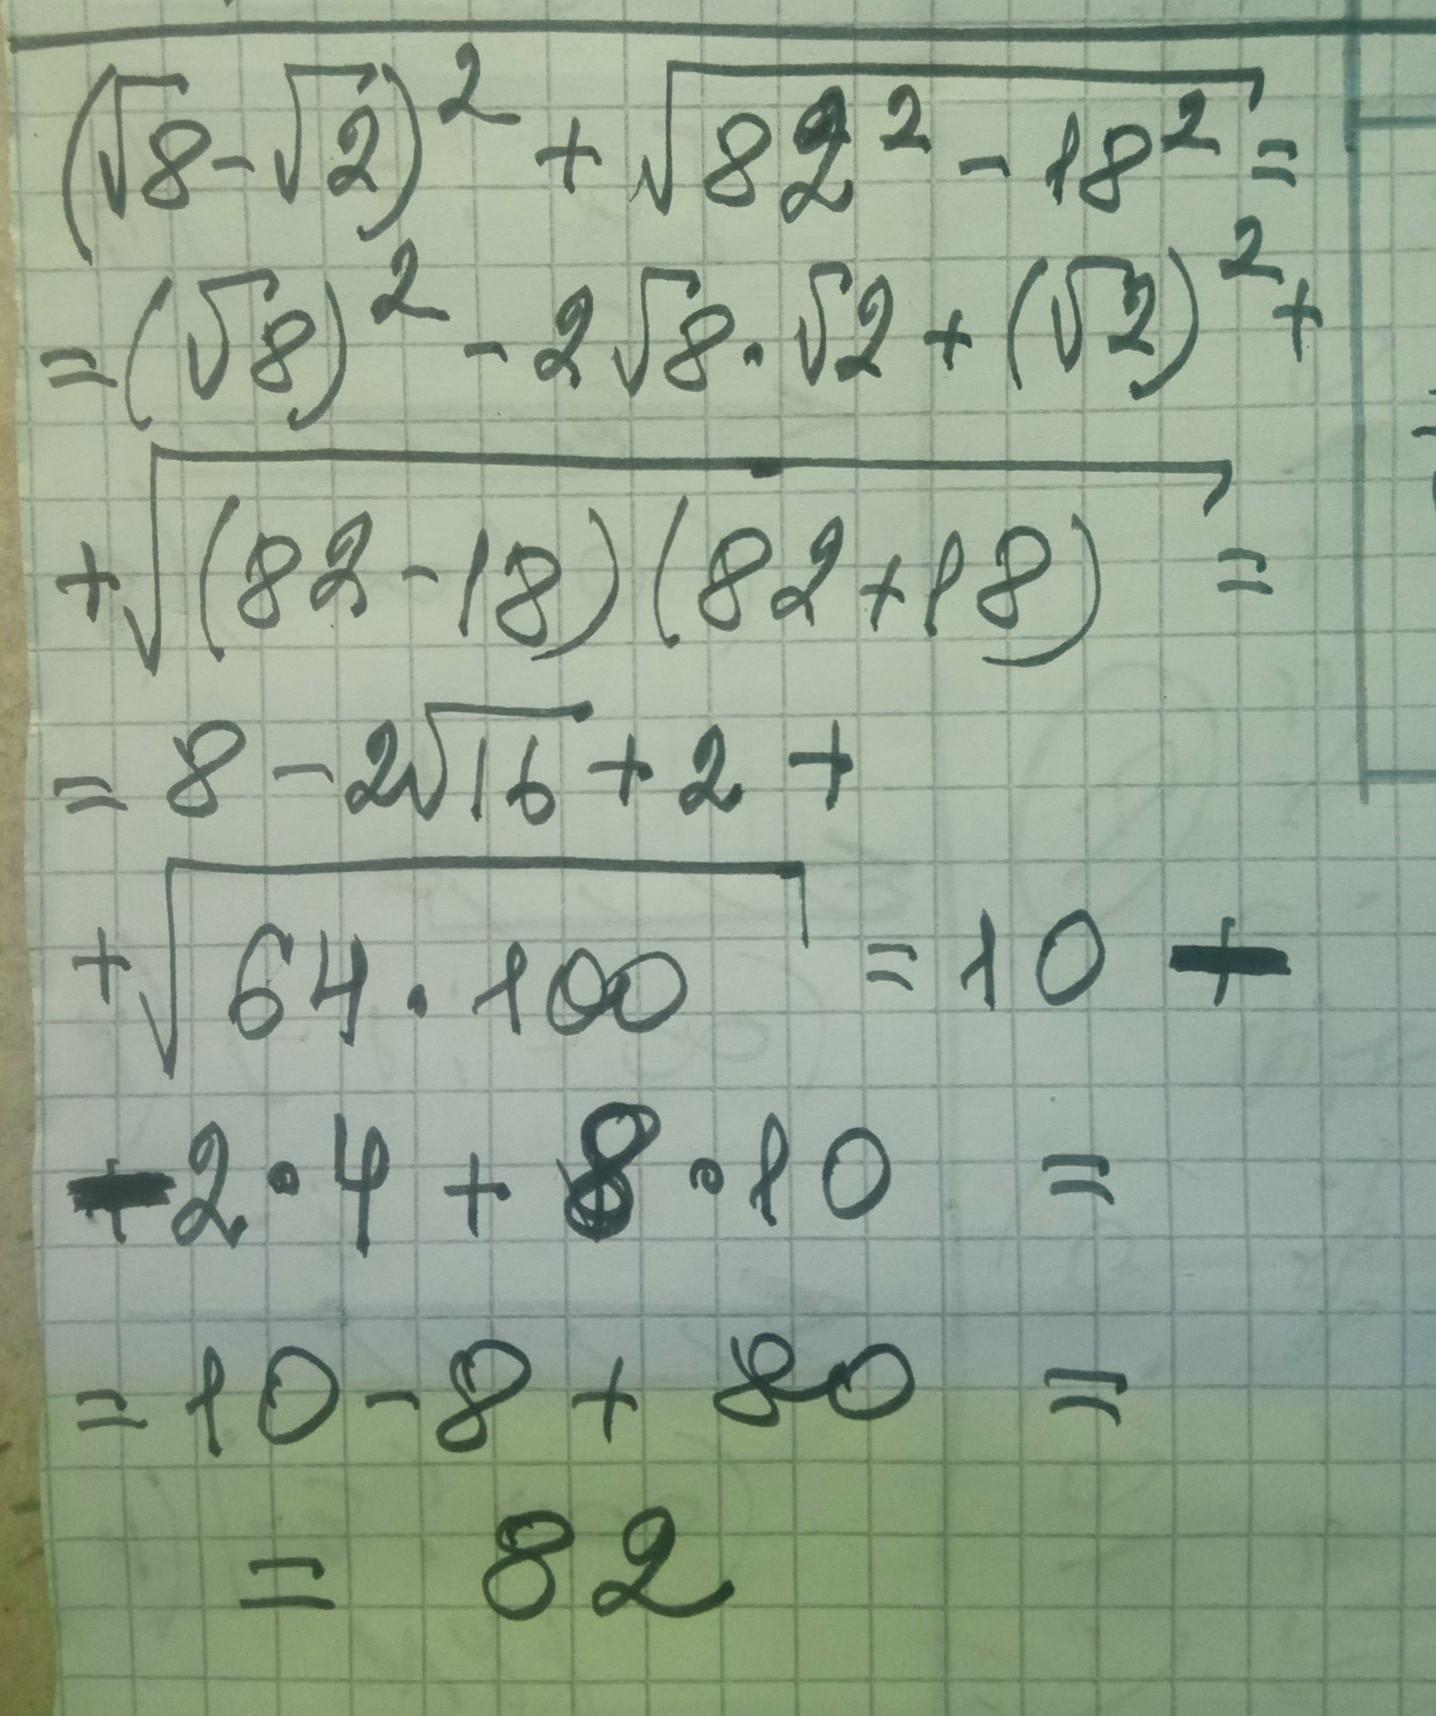 (√8-√2)² + √(82² - 18²) =
= (√8)² - 2√8 · √2 + (√2)² +
+ √((82-18)(82+18)) =
= 8 - 2√16 + 2 +
+ √(64 · 100) = 10 -
- 2 · 4 + 8 · 10 =
= 10 - 8 + 80 =
= 82